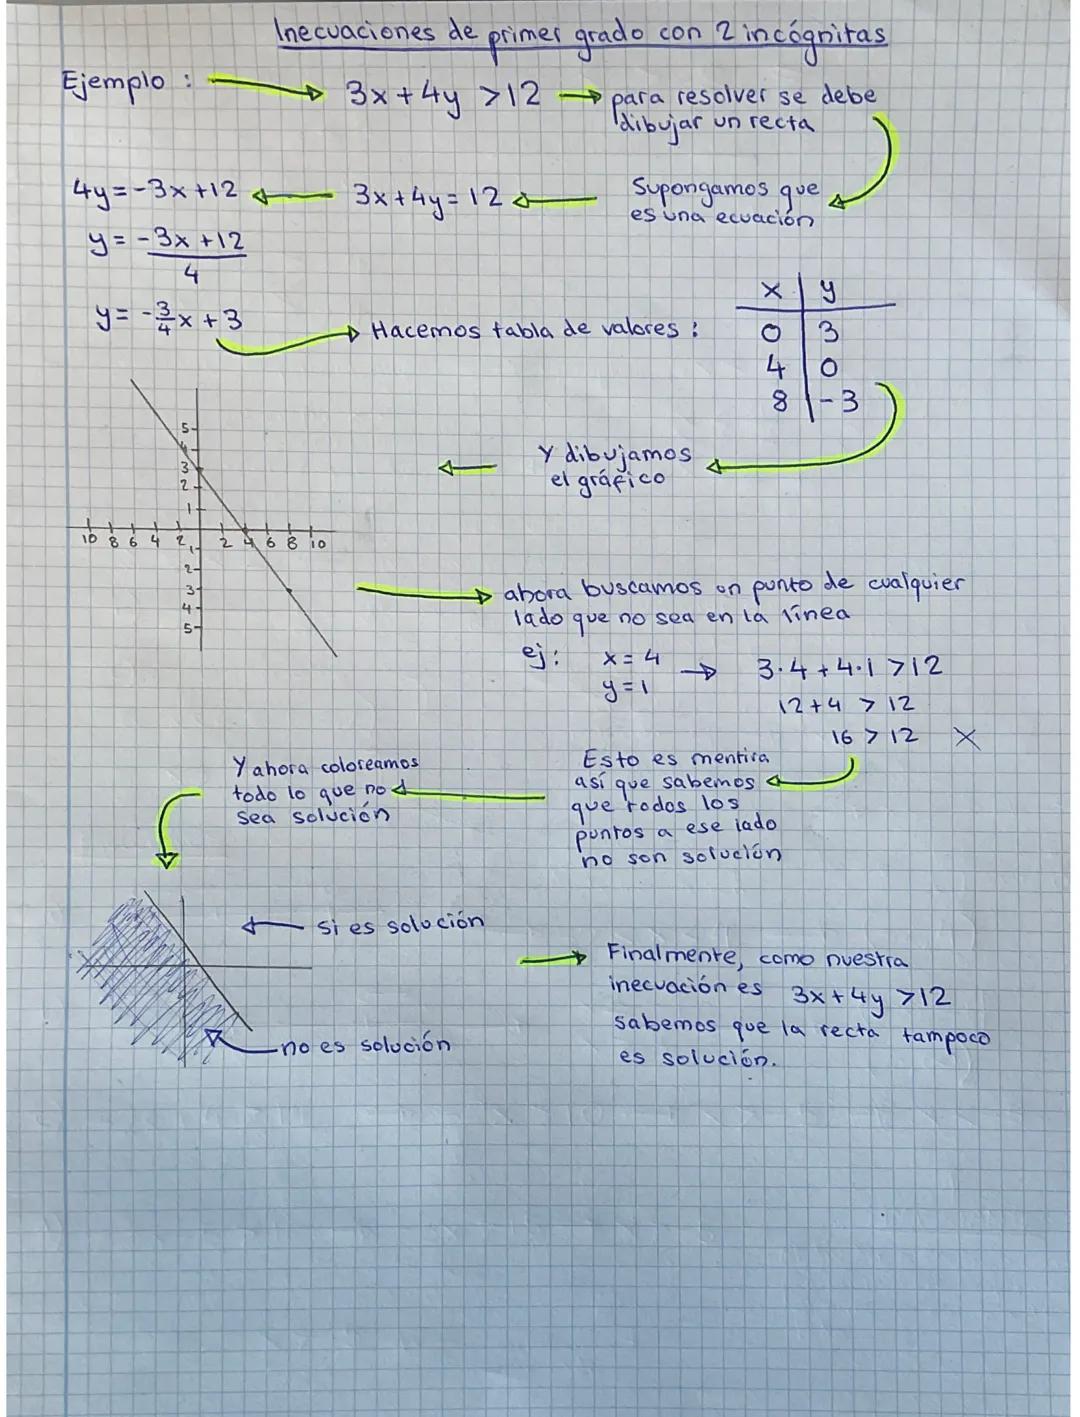 Inecuaciones de primer grado con 2 incógnitas
Ejemplo :
3x + 4y > 12
para resolver se debe
dibujar un recta
Supongamos que
es una ecuación
3x + 4y = 12
4y = -3x + 12
y = -3x + 12
4
y = -3/4 x + 3
Hacemos tabla de valores :
x y
0 3
4 0
8 -3
Y dibujamos
el gráfico
5
4
3
2
1
10 8 6 4 2 2 4 6 8 10
1
2
3
4
5
ahora buscamos un punto de cualquier
lado que no sea en la línea
ej: x = 4
y = 1
3·4 + 4·1 > 12
12 + 4 > 12
16 > 12 X
Esto es mentira
así que sabemos
que todos los
puntos a ese lado
no son solución
Y ahora coloreamos
todo lo que no
sea solución
si es solución
no es solución
Finalmente, como nuestra
inecuación es 3x + 4y > 12
sabemos que la recta tampoco
es solución.